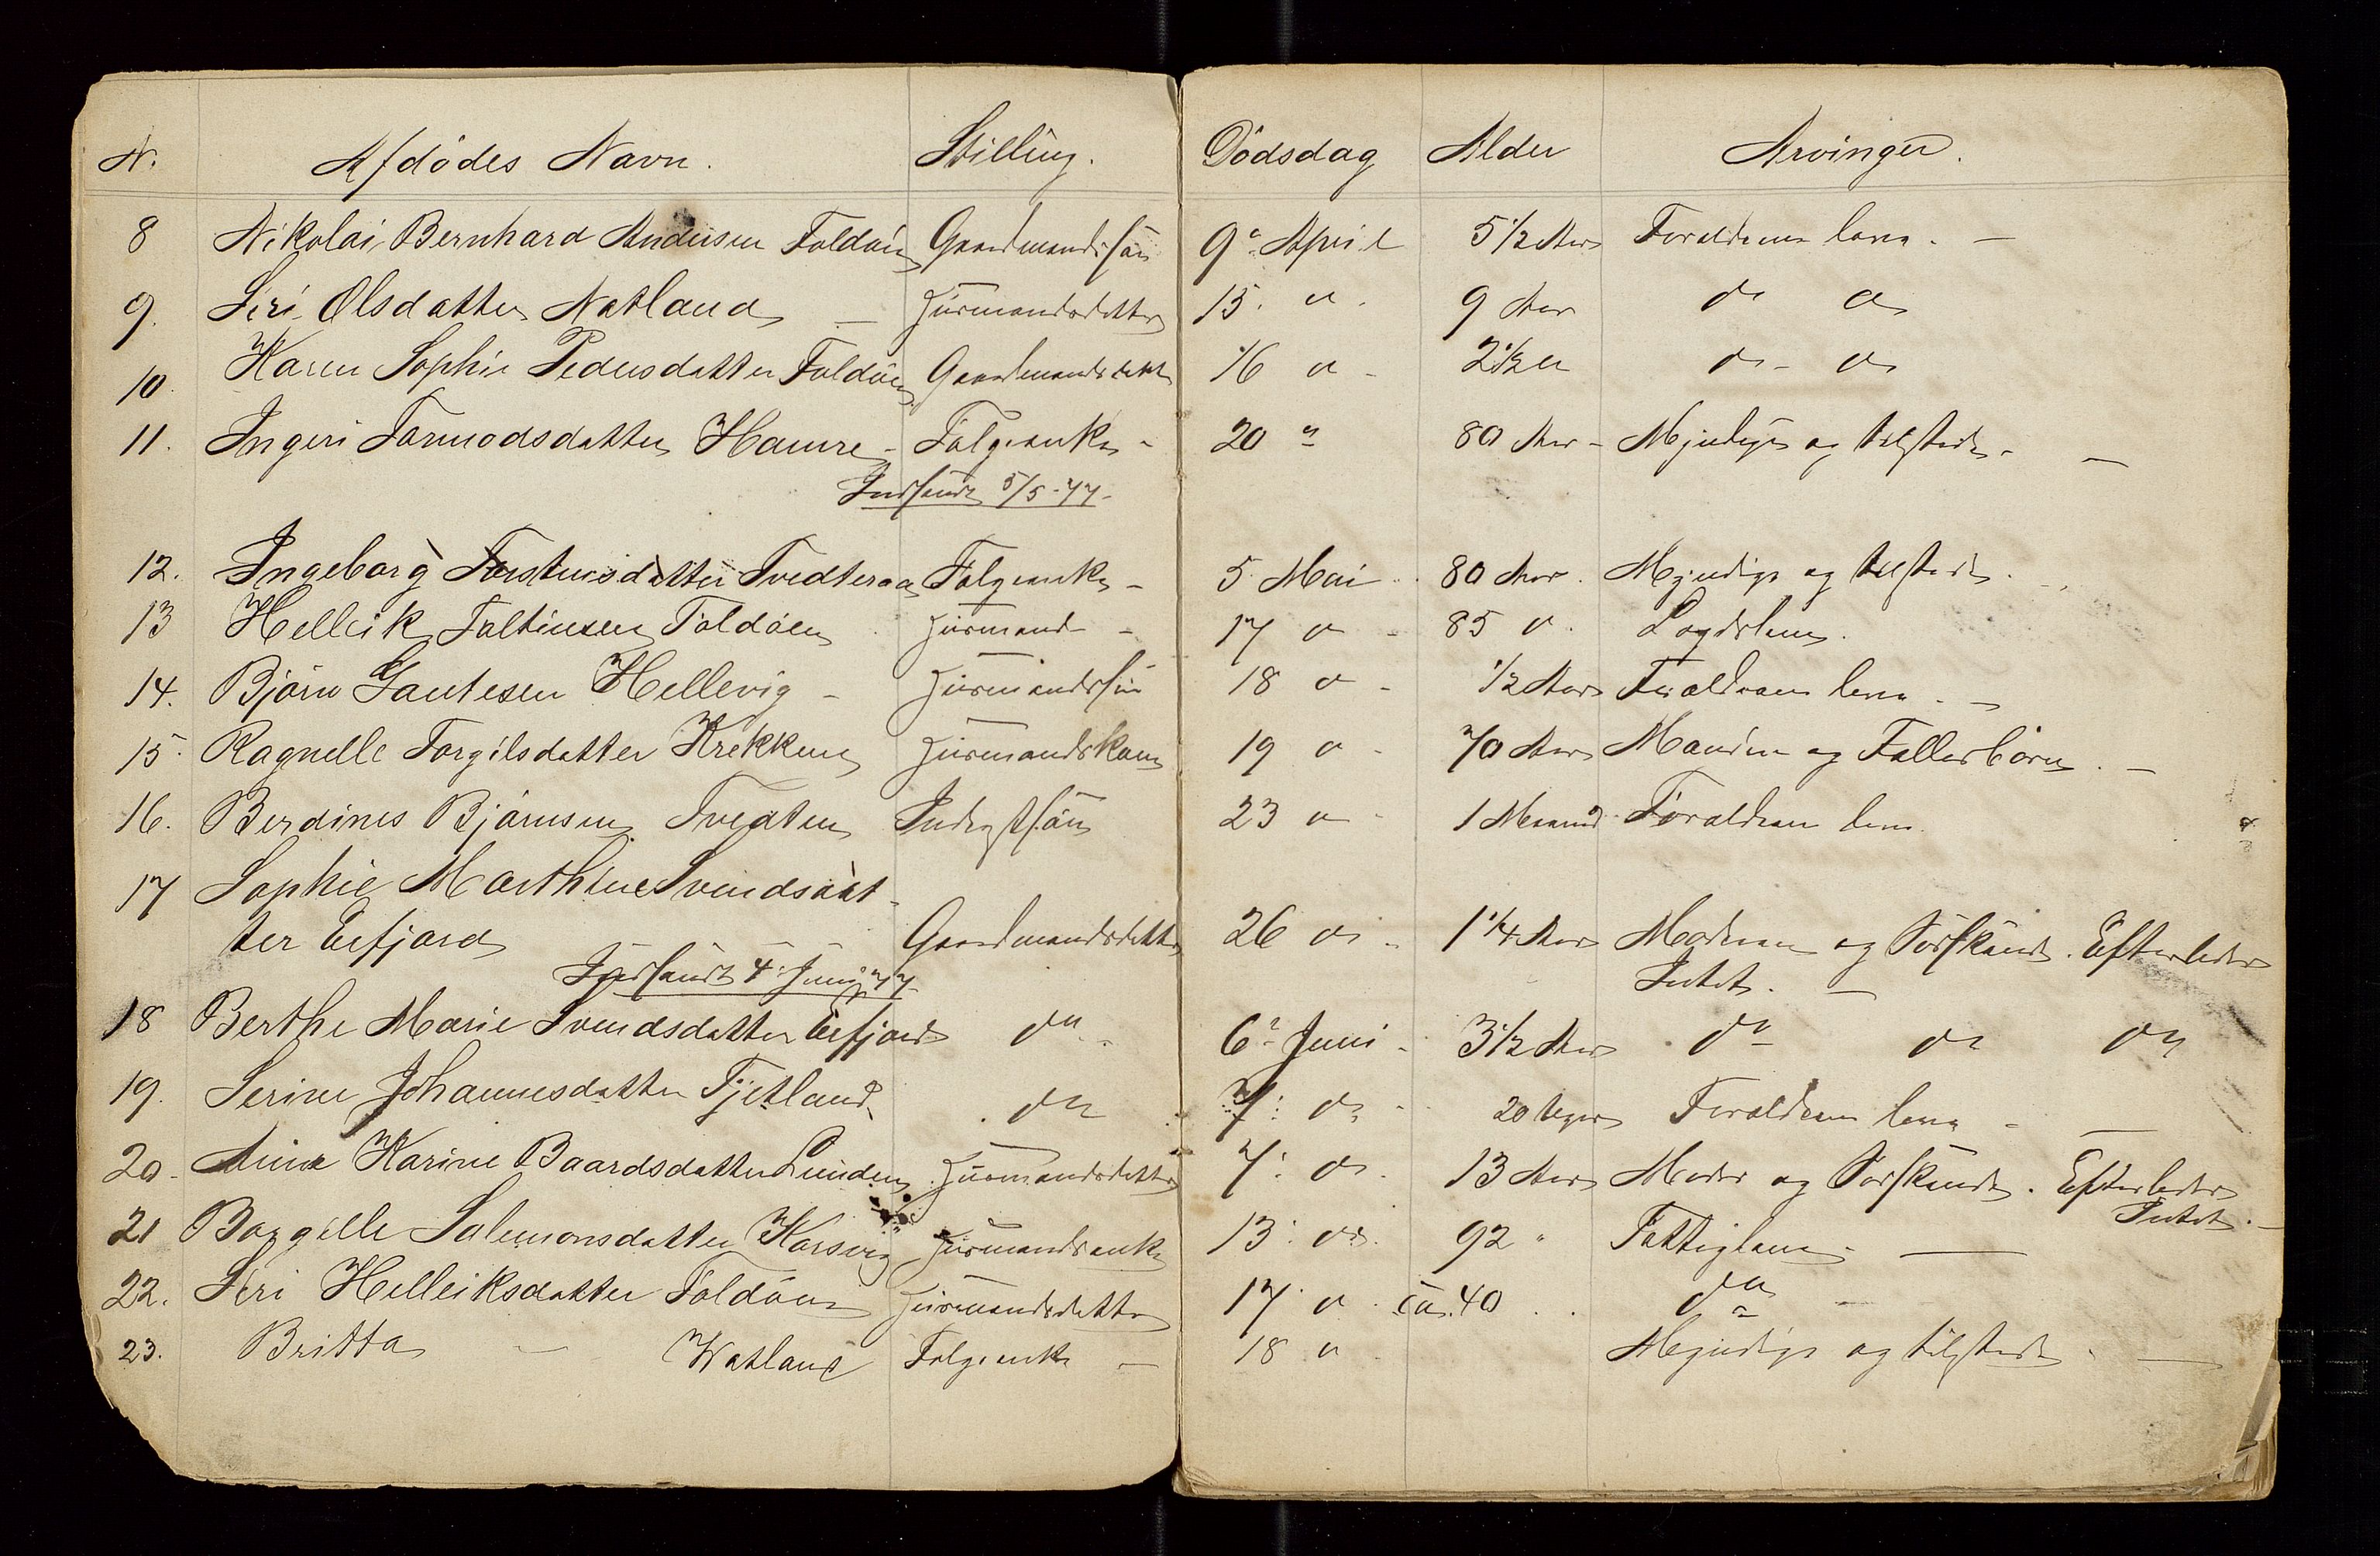 N. Afdødes Navn. Stilling. Dødsdag Alder Arvinger.
8 Nikolai Bernhard Andersen Foldøen Gaardmandssøn 9de April 5 1/2 Aar Forældrene leve. —
9. Siri Olsdatter Natland — Huusmandsdatter 15. do. 9 Aar do do
10. Karen Sophie Pedersdatter Foldøen Gaardmandsdatter 16 do - 2 1/2 do do - do
11. Ingeri Tormodsdatter Hamre - Folgeenke - 20 " 80 Aar - Myndige og tilstede - —
Indsendt 5/5 - 77 -
12. Ingeborg Torstensdatter Tvedteraas Folgeenke - 5 Mai 80 Aar. Myndige og tilstede.
13 Helleik Foltinsen Foldøen Huusmand - 17 do - 85 do. Lægdslem.
14. Bjørn Gautesen Hellevig - Huusmandssøn 18 do - 1/2 Aar Forældrene leve. -
15. Ragnelle Torgilsdatter Krekken Huusmandskone 19 do - 70 Aar Manden og Fællesbørn. —
16. Berdines Bjørnsen Tvedten Inderstsøn 23 do - 1 Maaned Forældrene leve
17 Sophie Marthine Svendsdat-
ter Eefjord Gaardmandsdatter 26 do - 1 1/4 Aar Moderen og Søskende. Efterlader
Intet. —
Indsendt 4: Juni 77
18 Berthe Marie Svendsdatter Eefjord do - 6te Juni - 3 1/2 Aar do do do
19. Serine Johannesdatter Fjetland. do 7: do - 20 Uger Forældrene leve - —
20 - Anne Karine Baardsdatter Lunden Huusmandsdatter 7: do. 13 Aar Moder og Søskende. Efterlader
Intet. —
21 Borgelle Salemonsdatter Korsvig Huusmandsenke 13: do. 92 " Fattiglem. —
22. Siri Helleiksdatter Foldøen Huusmandsdatter 17. do. ca. 40 . . do —
23. Britta — Watland Folgeenke — 18 do Myndige og tilstede. —